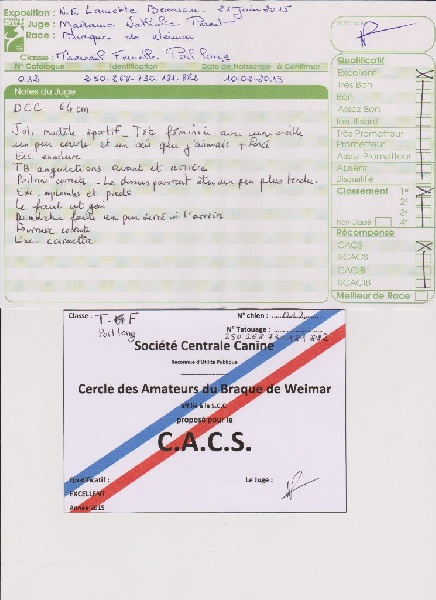 Exposition : N.E. Lamotte Beuvron 21 juin 2015
Juge : Madame Nathalie Parent
Race : Braque de Weimar
Classe : Travail Femelle Poil long
N° Catalogue Identification Date de Naissance à Confirmer
012 250.268.730.121.882 10.02.2013
Notes du Juge
DCC 64 cm
Joli modèle sportif - Tête féminine avec une oreille
un peu courte et un œil que j'aimerais + foncé
Exc. encolure
TB angulations avant et arrière
Poitrine correcte - Le dessus pourrait être un peu plus tendu.
Exc. aplombs et pieds
Le fouet est gai
Démarche facile un peu serré à l'arrière
Fourrure correcte
Exc. caractère
Qualificatif
Excellent
Très Bon
Bon
Assez Bon
Insuffisant
Très Prometteur
Prometteur
Assez Prometteur
Absent
Disqualifié
Classement 1e
2e
3e
Non Classé 4e
Récompense
CACS
RCACS
CACIB
RCACIB
Meilleur de Race
Classe : T-F
Poil long
N° chien :
N° Tatouage :
Société Centrale Canine
Reconnue d'Utilité Publique
Cercle des Amateurs du Braque de Weimar
affilié à la S.C.C.
proposé pour le
C.A.C.S.
Qualificatif : Le Juge :
EXCELLENT
Année 2015